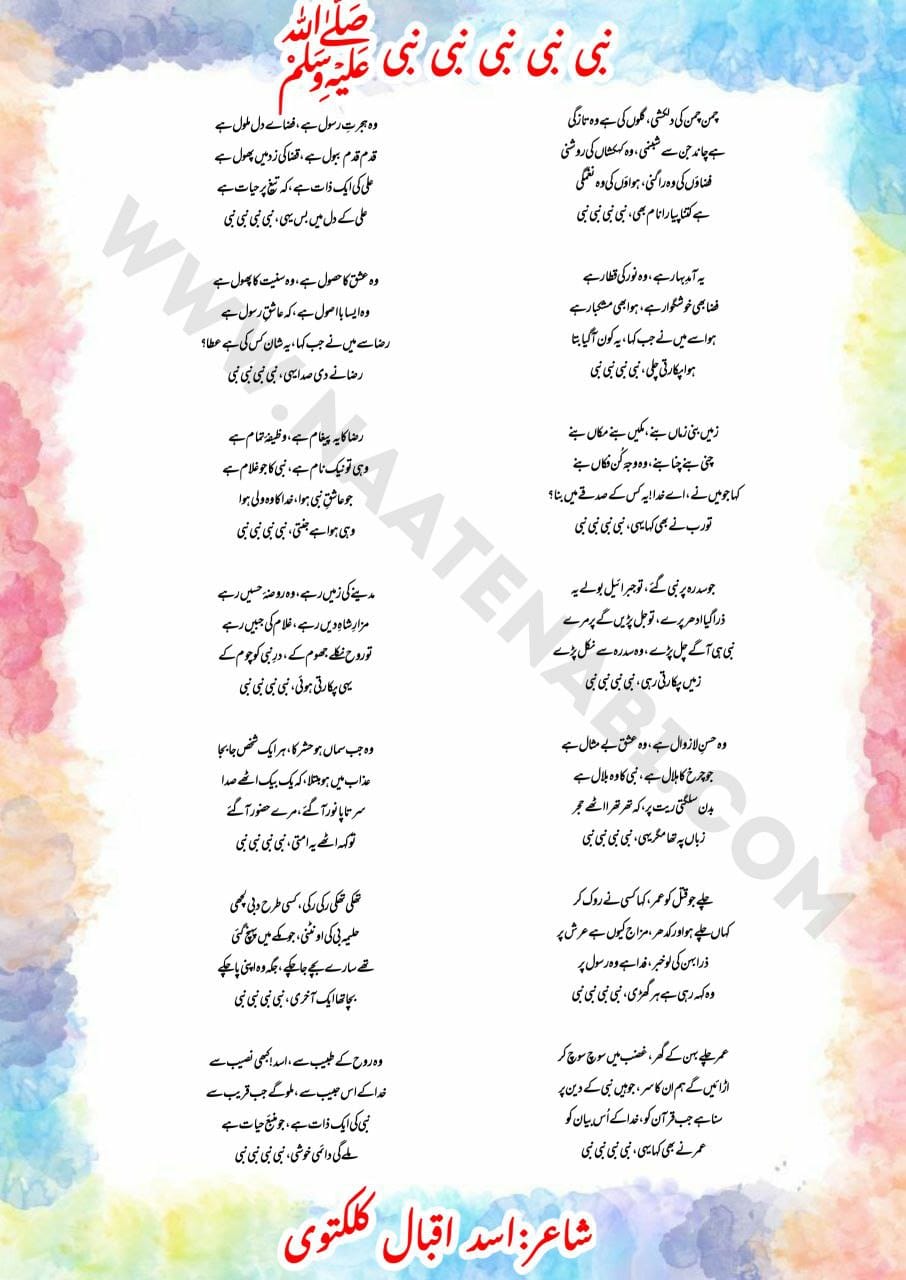 نبی نبی نبی نبی نبی صلی اللہ علیہ وسلم
چمن چمن کی دلکشی، گلوں کی ہے وہ تازگی
ہے چاند جن سے شبنمی، وہ کہکشاں کی روشنی
فضاؤں کی وہ راگنی، ہواؤں کی وہ نغمگی
ہے کتنا پیارا نام بھی، نبی نبی نبی نبی
یہ آمدِ بہار ہے، وہ نور کی قطار ہے
فضا بھی خوشگوار ہے، ہوا بھی مشکبار ہے
ہوا سے میں نے جب کہا، یہ کون آگیا بتا
ہوا پکارتی چلی، نبی نبی نبی نبی
زمیں بنی زماں بنے، مکیں بنے مکاں بنے
چنیٰ بنے چنا بنے، وہ وجہِ کُن فکاں بنے
کہا جو میں نے، اے خدا! یہ کس کے صدقے میں بنا؟
تو رب نے بھی کہا یہی، نبی نبی نبی نبی
جو سدرہ پر نبی گئے، تو جبرائیل بولے یہ
ذرا گیا ادھر پرے، تو جل پڑیں گے پر مرے
نبی ہی آگے چل پڑے، وہ سدرہ سے نکل پڑے
زمیں پکارتی رہی، نبی نبی نبی نبی
وہ حسنِ لازوال ہے، وہ عشق بے مثال ہے
جو چرخ کا ہلال ہے، نبی کا وہ بلال ہے
بدن سلگتی ریت پر، کہ تھر تھرا اٹھے حجر
زباں پہ تھا مگر یہی، نبی نبی نبی نبی
چلے جو قتل کو عمر، کہا کسی نے روک کر
کہاں چلے ہو اور کدھر، مزاج کیوں ہے عرش پر
ذرا بہن کی لو خبر، فدا ہے وہ رسول پر
وہ کہہ رہی ہے ہر گھڑی، نبی نبی نبی نبی
عمر چلے بہن کے گھر، غضب میں سوچ سوچ کر
اڑائیں گے ہم ان کا سر، جو ہیں نبی کے دین پر
سنا ہے جب قرآن کو، خدا کے اُس بیان کو
عمر نے بھی کہا یہی، نبی نبی نبی نبی
وہ ہجرتِ رسول ہے، فضاے دل ملول ہے
قدم قدم ببول ہے، قضا کی زد میں پھول ہے
علی کی ایک ذات ہے، کہ تیغ پر حیات ہے
علی کے دل میں بس یہی، نبی نبی نبی نبی
وہ عشق کا حصول ہے، وہ سنیت کا پھول ہے
وہ ایسا با اصول ہے، کہ عاشقِ رسول ہے
رضا سے میں نے جب کہا، یہ شان کس کی ہے عطا؟
رضا نے دی صدا یہی، نبی نبی نبی نبی
رضا کا یہ پیغام ہے، وظیفۂ تمام ہے
وہی تو نیک نام ہے، نبی کا جو غلام ہے
جو عاشقِ نبی ہوا، خدا کا وہ ولی ہوا
وہی ہوا ہے جنتی، نبی نبی نبی نبی
مدینے کی زمیں رہے، وہ روضۂ حسیں رہے
مزارِ شاہِ دیں رہے، غلام کی جبیں رہے
تو روح نکلے جھوم کے، درِ نبی کو چوم کے
یہی پکارتی ہوئی، نبی نبی نبی نبی
وہ جب سماں ہو حشر کا، ہر ایک شخص جا بجا
عذاب میں ہو مبتلا، کہ یک بیک اٹھے صدا
سر تا پا نور آ گئے، مرے حضور آ گئے
تو کہہ اٹھے یہ امتی، نبی نبی نبی نبی
تھکی تھکی رکی رکی، کسی طرح دبی لچھی
حلیمہ بی کی اونٹنی، جو مکے میں پہنچ گئی
تھے سارے بچے جا چکے، جگہ وہ اپنی پا چکے
بچا تھا ایک آخری، نبی نبی نبی نبی
وہ روح کے طبیب سے، اسد! کبھی نصیب سے
خدا کے اس حبیب سے، ملو گے جب قریب سے
نبی کی ایک ذات ہے، جو منبعِ حیات ہے
ملے گی دائمی خوشی، نبی نبی نبی نبی
شاعر: اسد اقبال کلکتوی
WWW.NAATENABI.COM